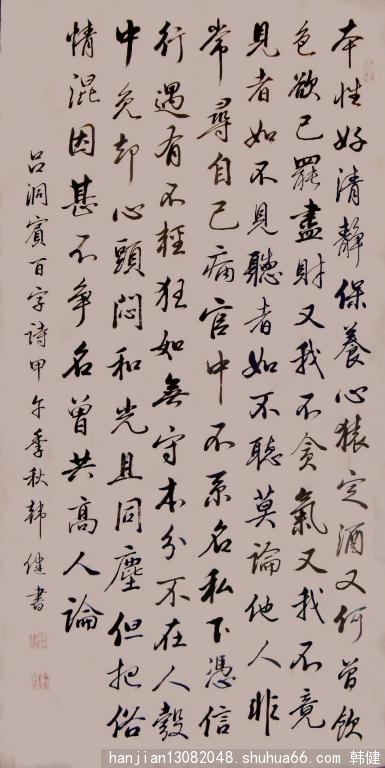 本性好清靜保養心猿定酒又何曾飲
色欲已罷盡財又我不貪氣又我不竟
見者如不見聽者如不聽莫論他人非
常尋自己病官中不系名私下憑信
行遇有不輕狂如無守本分不在人彀
中免却心頭悶和光且同塵但把俗
情混因甚不争名曾共高人論
吕洞賓百字詩甲午季秋韩健書
hanjian13082048.shuhua66.com 韩健